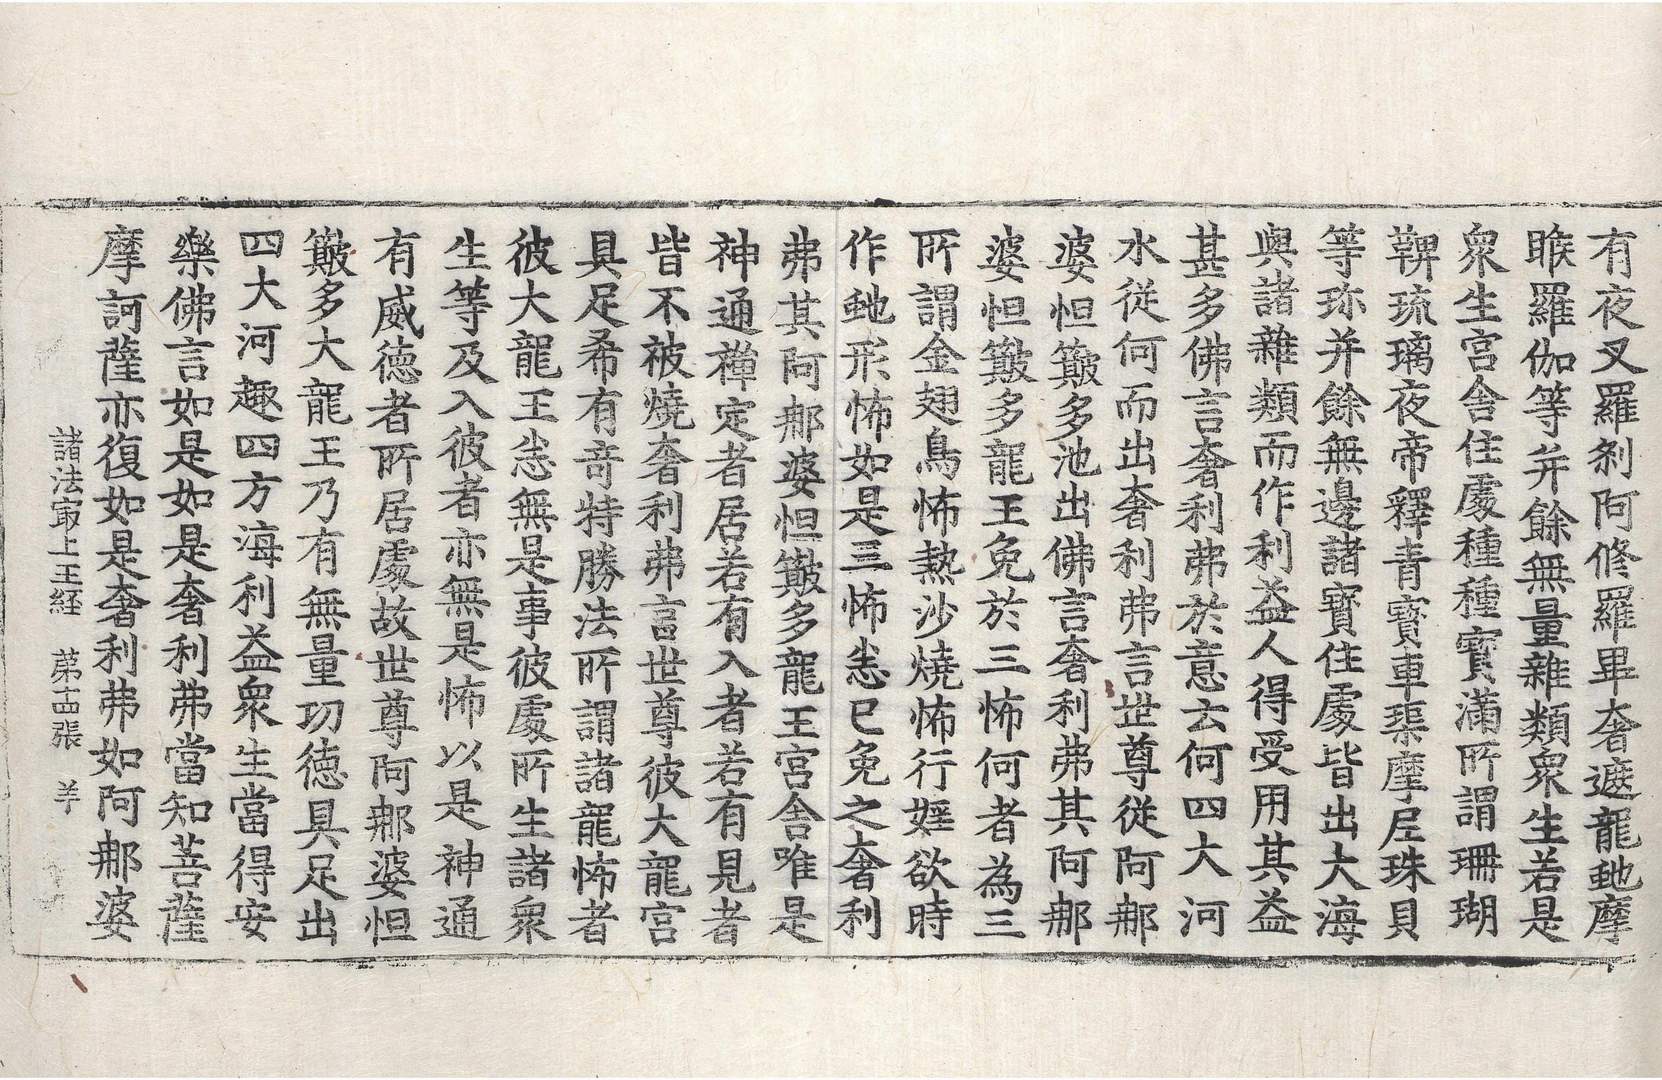 有夜叉羅刹阿修羅畢奢遮龍虵摩
睺羅伽等并餘無量雜類衆生若是
衆生宮舍住處種種寶滿所謂珊瑚
鞞琉璃夜帝釋青寶車渠摩尼珠貝
等珎并餘無邊諸寶住處皆出大海
與諸雜類而作利益人得受用其益
甚多佛言奢利弗於意云何四大河
水從何而出奢利弗言世尊從阿那
婆怛簸多池出佛言奢利弗其阿那
婆怛簸多龍王免於三怖何者為三
所謂金翅鳥怖熱沙燒怖行婬欲時
作虵形怖如是三怖恙已免之奢利
弗其阿那婆怛簸多龍王宮舍唯是
神通禪定者居若有入者若有見者
皆不被燒奢利弗言世尊彼大龍宮
具足希有竒特勝法所謂諸龍怖者
彼大龍王恙無是事彼處所生諸衆
生等及入彼者亦無是怖以是神通
有威德者所居處故世尊阿那婆怛
簸多大龍王乃有無量功德具足出
四大河趣四方海利益衆生當得安
樂佛言如是如是奢利弗當知菩薩
摩訶薩亦復如是奢利弗如阿那婆
諸法冣上王経　第十四張　羊